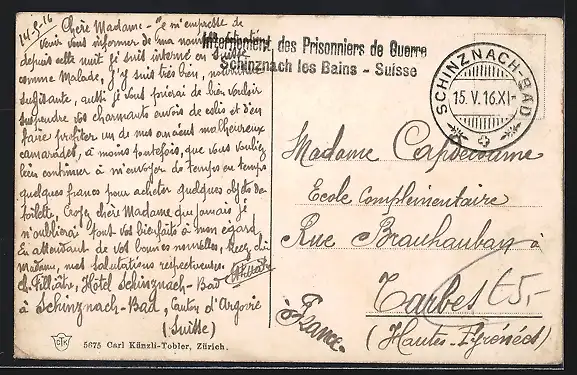 14-5-16
Chère Madame - Je m'empresse de
venir vous informer de ma nouvelle
depuis cette nuit je suis interné en Suisse
comme Malade, j'y suis très bien, nourriture
suffisante, aussi je vous prierai de bien vouloir
suspendre vos charmants envois de colis et d'en
faire profiter un de mes anciens malheureux
camarades, à moins toutefois, que vous vouliez
bien continuer à m'envoyer de temps en temps
quelques francs pour acheter quelques objets de
toilette, Croyez chère Madame que jamais je
n'oublierai tout vos bienfaits à mon égard
En attendant de vos bonnes nouvelles, Recevez chère
Madame, mes salutations respectueuses.
Ch. Filliâtre, Hôtel Schinznach-Bad
à Schinznach-Bad, Canton d'Argovie
(Suisse)
CTK
5675 Carl Künzli-Tobler, Zürich.
Internement des Prisonniers de Guerre
Schinznach les Bains - Suisse
SCHINZNACH-BAD
15. V. 16. XI-
Madame Capdecomme
Ecole Complémentaire
Rue Brauhauban à
Tarbes
(Hautes-Pyrénées)
à France.
65,-